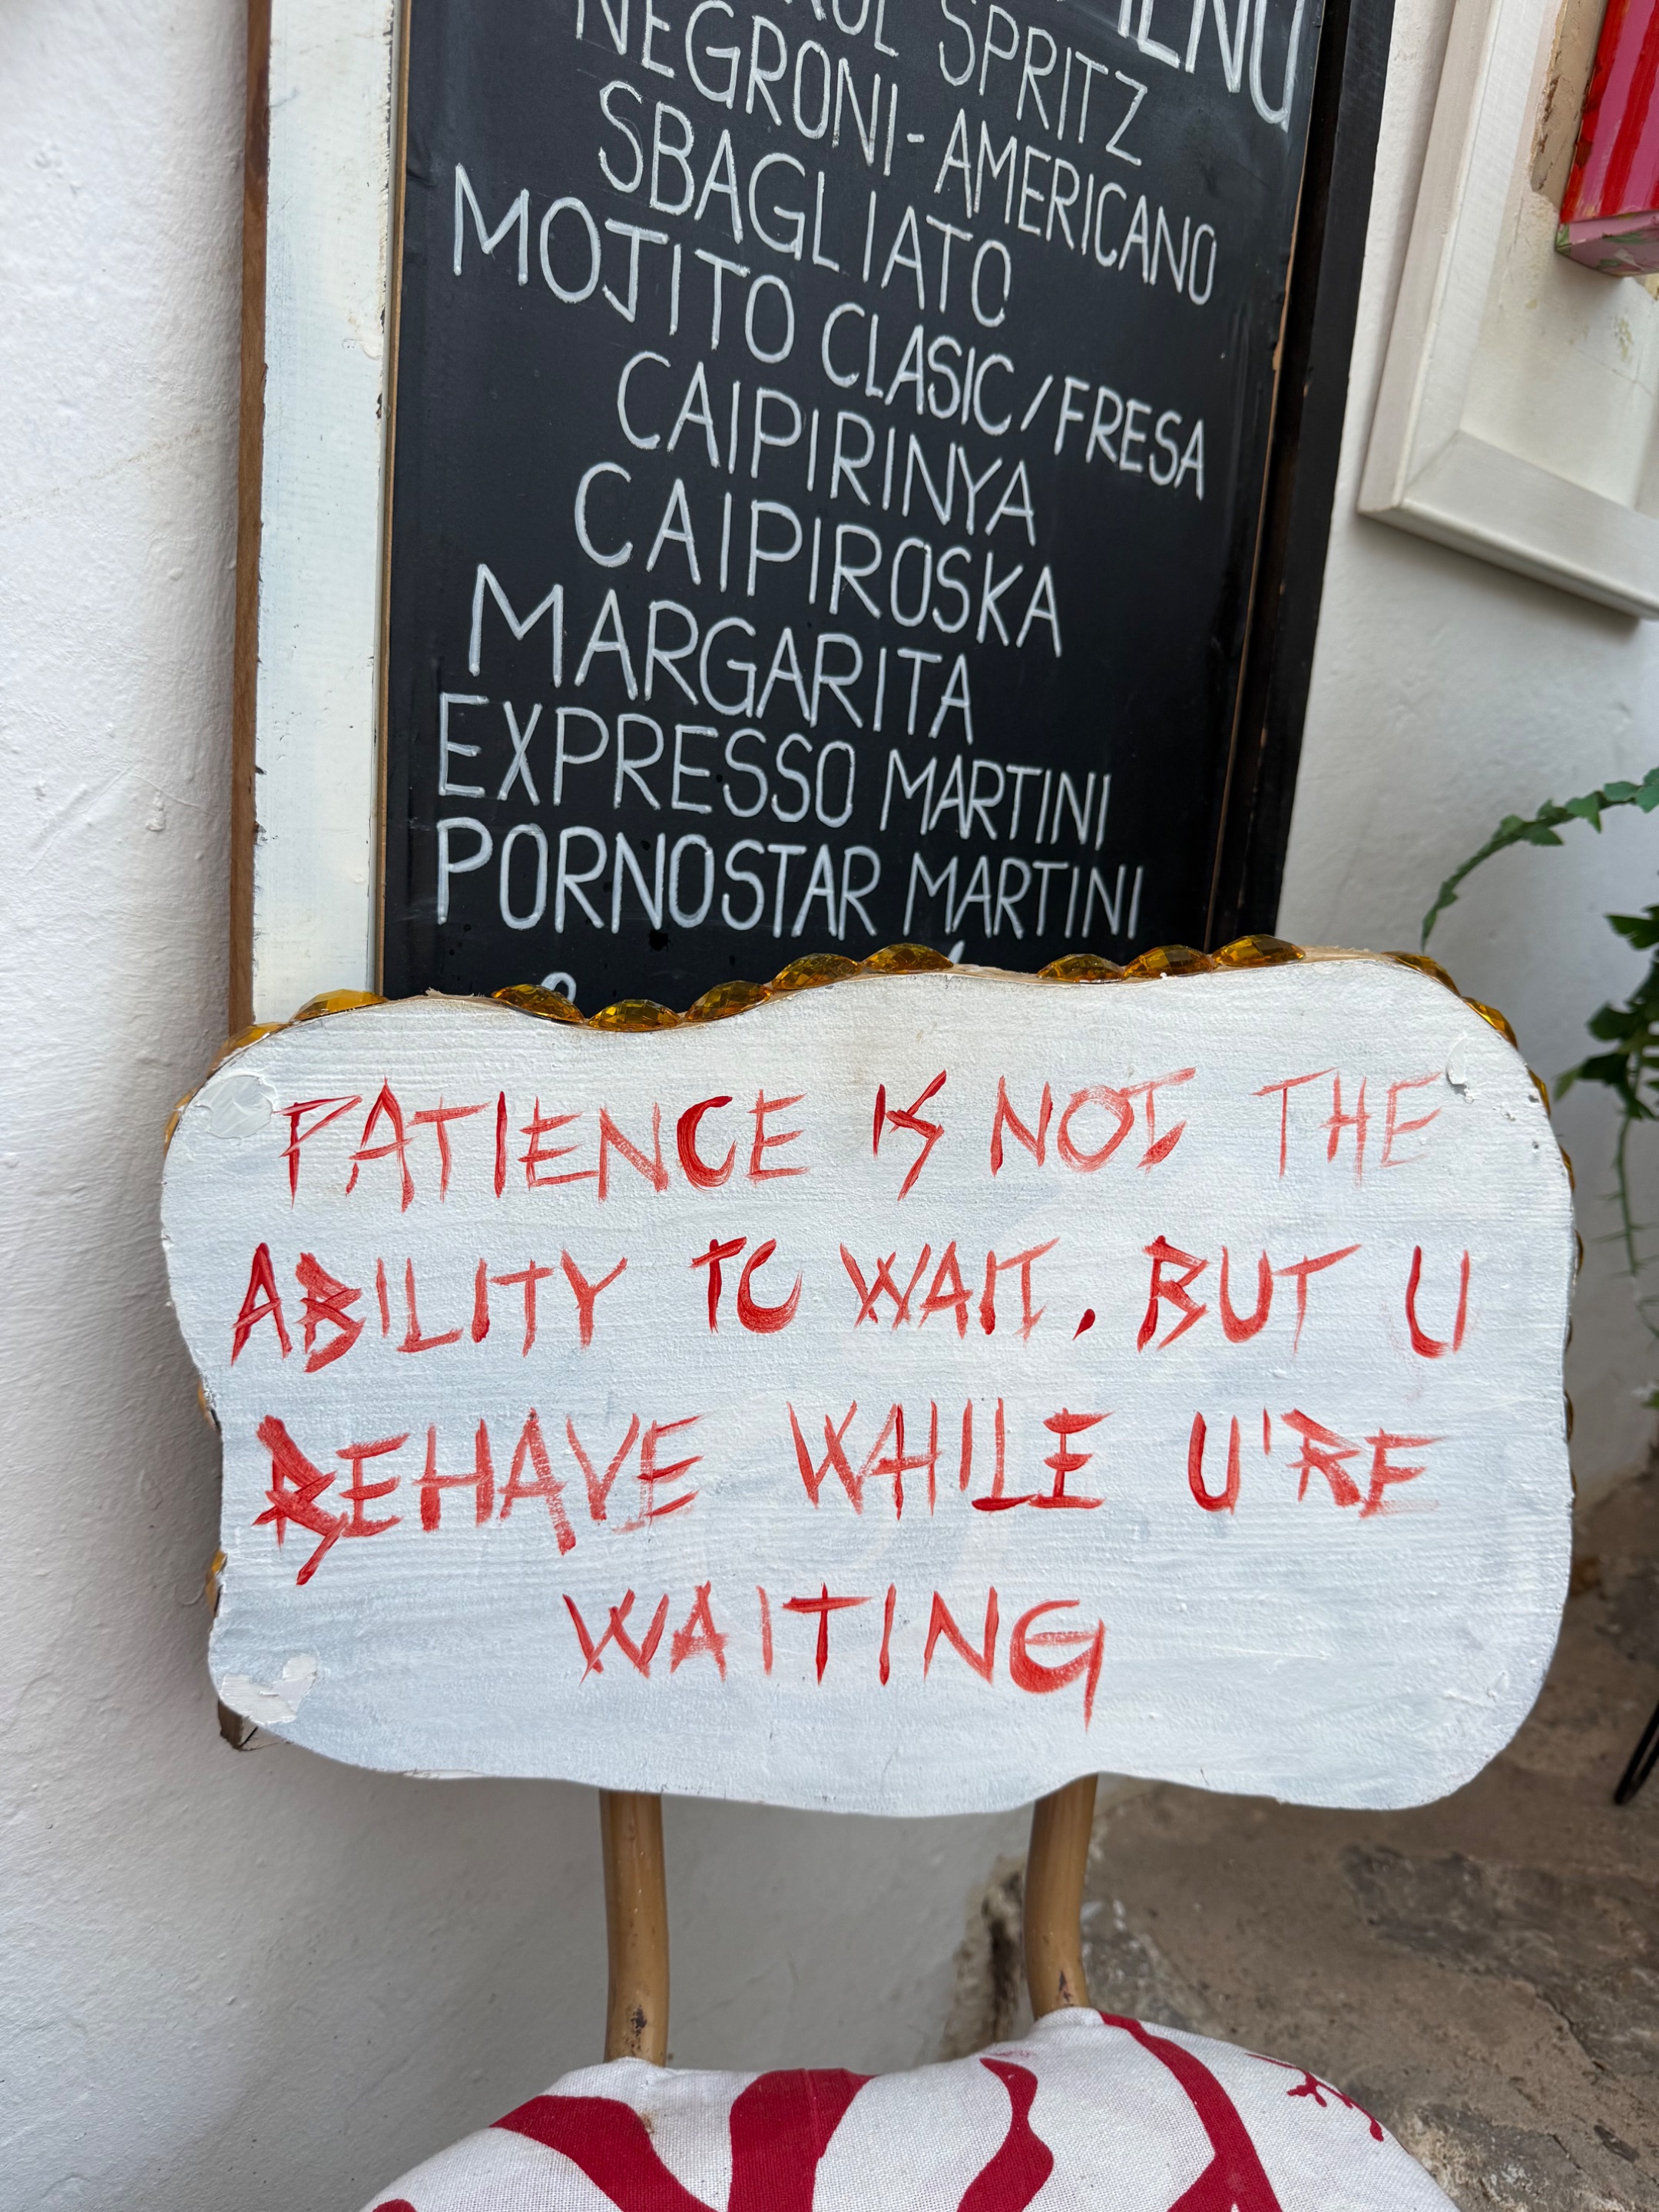 SPRITZ
NEGRONI-AMERICANO
SBAGLIATO
MOJITO CLASIC/FRESA
CAIPIRINYA
CAIPIROSKA
MARGARITA
EXPRESSO MARTINI
PORNOSTAR MARTINI
PATIENCE IS NOT THE
ABILITY TO WAIT, BUT U
BEHAVE WHILE U'RE
WAITING